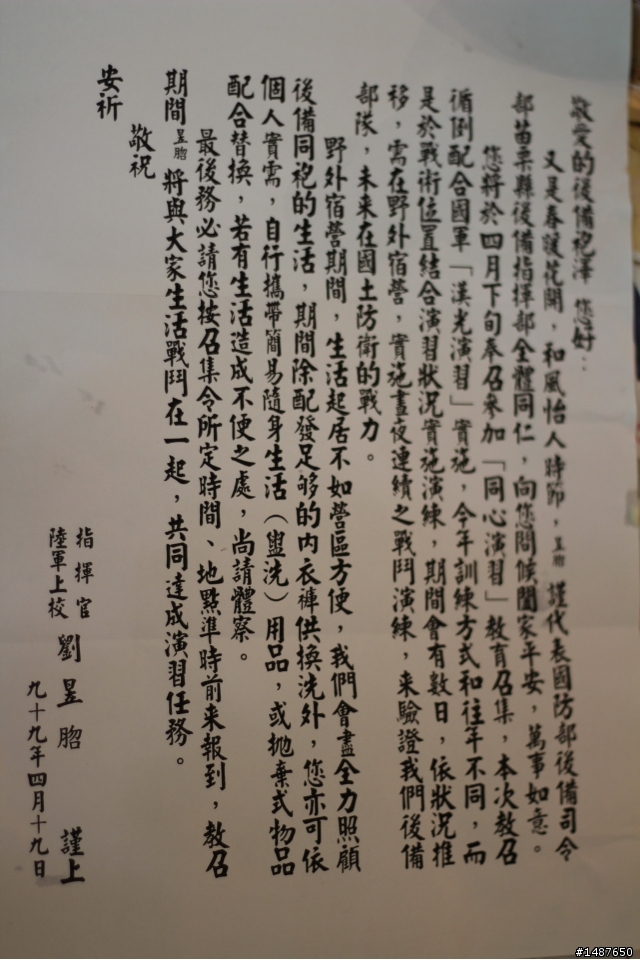 敬愛的後備袍澤 您好：
又是春暖花開，和風怡人時節，昱䏠 謹代表國防部後備司令
部苗栗縣後備指揮部全體同仁，向您問候闔家平安，萬事如意。
您將於四月下旬奉召參加「同心演習」教育召集，本次教召
循例配合國軍「漢光演習」實施，今年訓練方式和往年不同，而
是於戰術位置結合演習狀況實施演練，期間會有數日，依狀況推
移，需在野外宿營，實施晝夜連續之戰鬥演練，來驗證我們後備
部隊，未來在國土防衛的戰力。
野外宿營期間，生活起居不如營區方便，我們會盡全力照顧
後備同袍的生活，期間除配發足夠的內衣褲供換洗外，您亦可依
個人實需，自行攜帶簡易隨身生活（盥洗）用品，或拋棄式物品
配合替換，若有生活造成不便之處，尚請體察。
最後務必請您按召集令所定時間、地點準時前來報到，教召
期間 昱䏠 將與大家生活戰鬥在一起，共同達成演習任務。
敬祝
安祈
指揮官
陸軍上校 劉昱䏠 謹上
九十九年四月十九日
#1487650